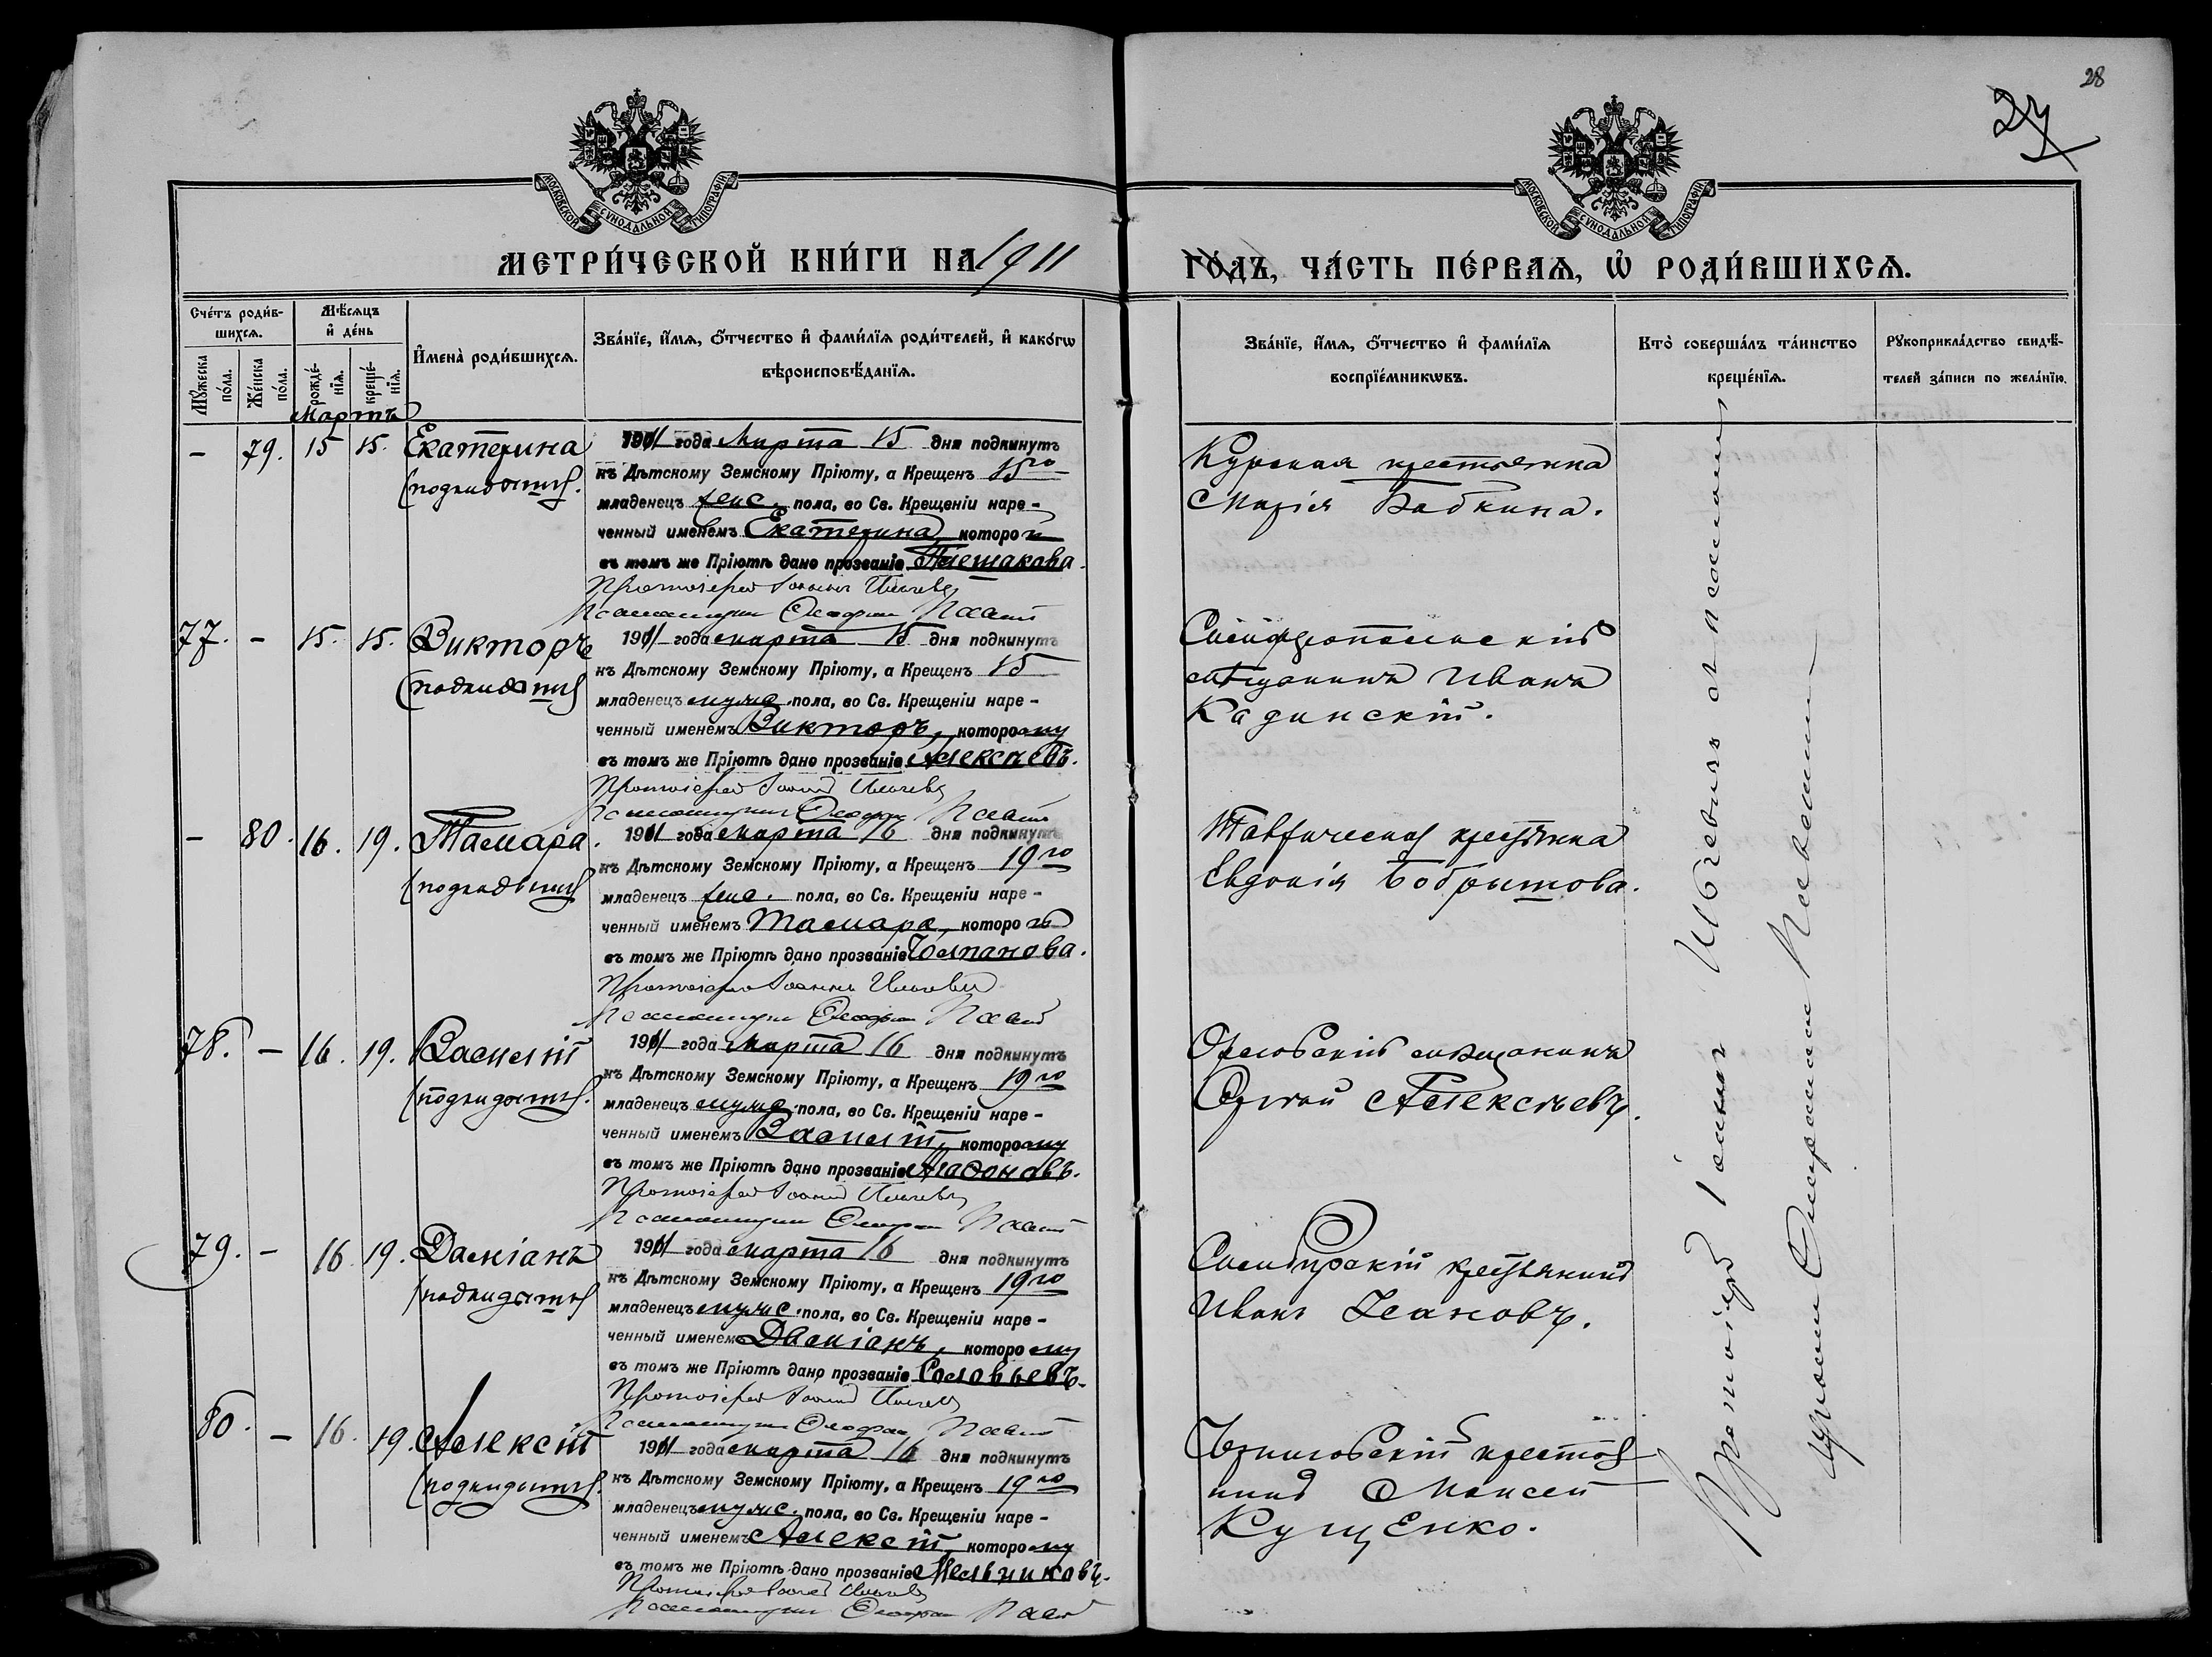 28
27
МОСКОВСКОЙ СѴНОДАЛЬНОЙ ТИПОГРАФІИ
МОСКОВСКОЙ СѴНОДАЛЬНОЙ ТИПОГРАФІИ
МЕТРИ́ЧЕСКОЙ КНИ́ГИ НА 1911
ГО́ДЪ, ЧА́СТЬ ПЕ́РВАѦ, Ѡ҆ РОДИ́ВШИХСѦ.
Сче́тъ роди́в-
шихсѧ.
Мꙋ́жеска по́ла.
Же́нска по́ла.
Мѣ́сѧцъ
и҆ де́нь
рожде́-
нїѧ.
креще́-
нїѧ.
И҆мена̀ роди́вшихсѧ.
Зва́нїе, и҆́мѧ, ѻ҆́тчество и҆ фами́лїѧ роди́телей, и҆ како́гѡ
вѣроисповѣ́данїѧ.
Зва́нїе, и҆́мѧ, ѻ҆́тчество и҆ фами́лїѧ
воспрїе́мникѡвъ.
Кто̀ соверша́лъ та́инство
креще́нїѧ.
Рꙋкоприкла́дство свидѣ́-
телей за́писи по жела́нїю.
Мартъ
– 79. 15 15. Екатерина
(подкидышъ).
1911 года Марта 15 дня подкинутъ
къ Дѣтскому Земскому Пріюту, а Крещенъ 15го
младенецъ женс. пола, во Св. Крещеніи наре-
ченный именемъ Екатерина, которой
въ томъ же Пріютѣ дано прозваніе Плешакова.
Протоіерей Іоаннъ
Курская крестьянка
Марія Бабкина.
77. – 15. 15. Викторъ
(подкидышъ)
1911 года марта 15 дня подкинутъ
къ Дѣтскому Земскому Пріюту, а Крещенъ 15
младенецъ муже. пола, во Св. Крещеніи наре-
ченный именемъ Викторъ, которому
въ томъ же Пріютѣ дано прозваніе Алексѣевъ.
Протоіерей Іоаннъ
Симферопольскій
мѣщанинъ Иванъ
Кадинскій.
– 80. 16. 19. Тамара.
(подкидышъ)
1911 года марта 16 дня подкинутъ
къ Дѣтскому Земскому Пріюту, а Крещенъ 19го
младенецъ жен. пола, во Св. Крещеніи наре-
ченный именемъ Тамара, которой
въ томъ же Пріютѣ дано прозваніе Чолпанова.
Протоіерей Іоаннъ
Таврическая крестьянка
Евдокія Бобрышова.
78. – 16. 19. Василій
(подкидышъ).
1911 года Марта 16 дня подкинутъ
къ Дѣтскому Земскому Пріюту, а Крещенъ 19го
младенецъ муже. пола, во Св. Крещеніи наре-
ченный именемъ Василій, которому
въ томъ же Пріютѣ дано прозваніе
Протоіерей Іоаннъ
Орловскій мѣщанинъ
Сергѣй Алексѣевъ.
79. – 16 19. Даміанъ
(подкидышъ)
1911 года марта 16 дня подкинутъ
къ Дѣтскому Земскому Пріюту, а Крещенъ 19го
младенецъ мужс. пола, во Св. Крещеніи наре-
ченный именемъ Даміанъ, которому
въ томъ же Пріютѣ дано прозваніе Соловьевъ.
Протоіерей Іоаннъ
Симбирскій крестьянинъ
Иванъ
80. – 16. 19. Алексій
(подкидышъ).
1911 года марта 16 дня подкинутъ
къ Дѣтскому Земскому Пріюту, а Крещенъ 19го
младенецъ мужс. пола, во Св. Крещеніи наре-
ченный именемъ Алексій, которому
въ томъ же Пріютѣ дано прозваніе Мельниковъ.
Протоіерей Іоаннъ
Черниговскій крестья
нинъ Моисей
Кущенко.
Протоіерей Іоаннъ